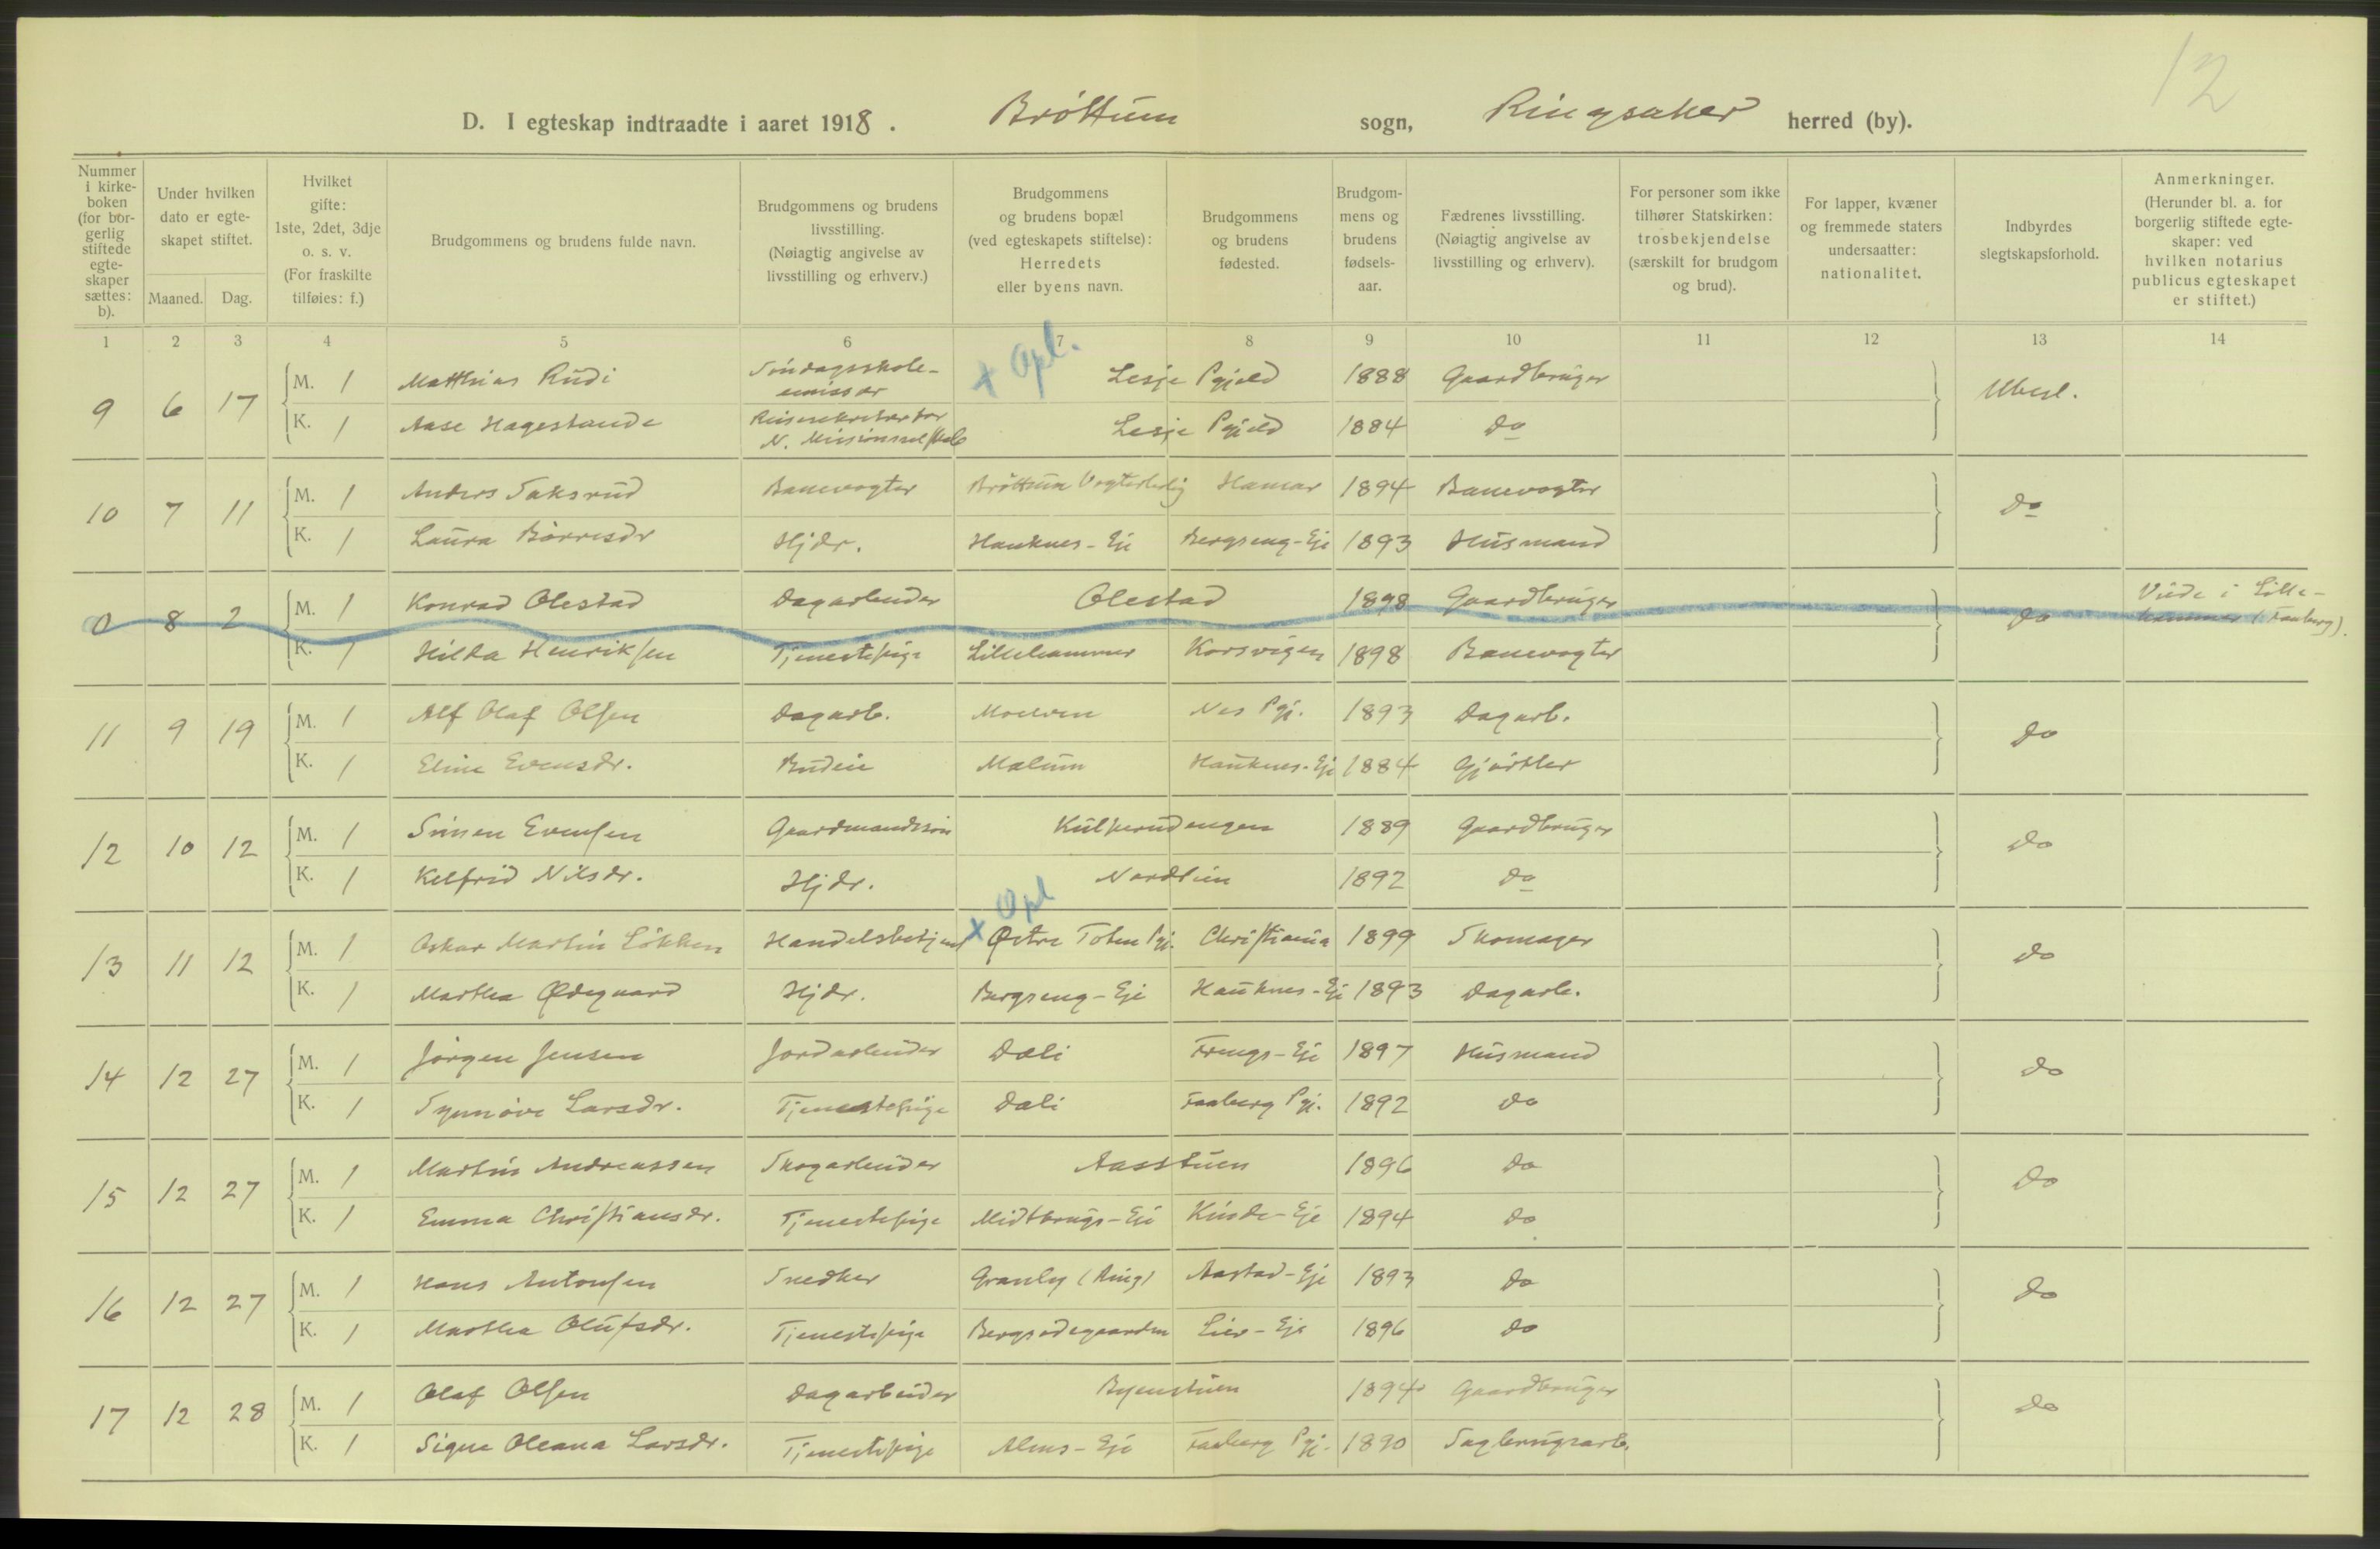 12
D. I egteskap indtraadte i aaret 1918. Bröttum sogn, Ringsaker herred (by).
Nummer i kirke-boken (for bor-gerlig stiftede egte-skaper sættes: b).
Under hvilken dato er egte-skapet stiftet.
Maaned. Dag.
Hvilket gifte: 1ste, 2det, 3dje o. s. v. (For fraskilte tilføies: f.)
Brudgommens og brudens fulde navn.
Brudgommens og brudens livsstilling. (Nøiagtig angivelse av livsstilling og erhverv.)
Brudgommens og brudens bopæl (ved egteskapets stiftelse): Herredets eller byens navn.
Brudgommens og brudens fødested.
Brudgom-mens og brudens fødsels-aar.
Fædrenes livsstilling. (Nøiagtig angivelse av livsstilling og erhverv).
For personer som ikke tilhører Statskirken: trosbekjendelse (særskilt for brudgom og brud).
For lapper, kvæner og fremmede staters undersaatter: nationalitet.
Indbyrdes slegtskapsforhold.
Anmerkninger. (Herunder bl. a. for borgerlig stiftede egte-skaper: ved hvilken notarius publicus egteskapet er stiftet.)
1 2 3 4 5 6 7 8 9 10 11 12 13 14
+ Opl.
9 6 17 M. 1 Matthias Rudi Söndagsskole-emissær Lesje Pgjeld 1888 Gaardbruger Ubesl.
K. 1 Aase Hagestande Reisesekretær for N. Missionsselskab Lesje Pgjeld 1884 Do
10 7 11 M. 1 Anders Taksrud Banevogter Bröttum Vogterbolig Hamar 1894 Banevogter Do
K. 1 Laura Börresdr Hjdr. Hauknes-Eje Bergseng-Eje 1893 Husmand
0 8 2 M. 1 Konrad Olestad Dagarbeider Olestad 1898 Gaardbruger do Viede i Lille-hammer (Faaberg).
K. 1 Hilda Henriksen Tjenestepige Lillehammer Korsvigen 1898 Banevogter
11 9 19 M. 1 Alf Olaf Olsen Dagarb. Moelven Nes Pgj. 1893 Dagarb. do
K. 1 Eline Evensdr. Budeie Mælum Hauknes-Eje 1884 Gjörtler
12 10 12 M. 1 Simen Evensen Gaardmandssön 1889 Gaardbruger do
K. 1 Nilsdr. Hjdr. Nordlien 1892 do
+ Opl
13 11 12 M. 1 Oskar Martin Lökken Handelsbetjent Østre Toten Pgj. Christiania 1899 Skomager do
K. 1 Marthea Ødegaard Hjdr. Bergseng-Eje Hauknes-Eje 1893 Dagarb.
14 12 27 M. 1 Jörgen Jensen Jordarbeider Dæli Frengs-Eje 1897 Husmand do
K. 1 Synnöve Larsdr. Tjenestepige Dæli Faaberg Pgj. 1892 do
15 12 27 M. 1 Martin Andreassen Skogarbeider Aasstuen 1896 do do
K. 1 Emma Christiansdr. Tjenestepige Midtbrugs-Eje Kinde-Eje 1894 do
16 12 27 M. 1 Hans Antonsen Snedker Granby (Ring) Aastad-Eje 1893 do do
K. 1 Marthea Olufsdr. Tjenestepige Bergsodegaarden Lier-Eje 1896 do
17 12 28 M. 1 Olaf Olsen Dagarbeider Byenstuen 1894 Gaardbruger do
K. 1 Signe Oleana Larsdr. Tjenestepige Alms-Eje Faaberg Pgj. 1890 Sagbrugsarb.